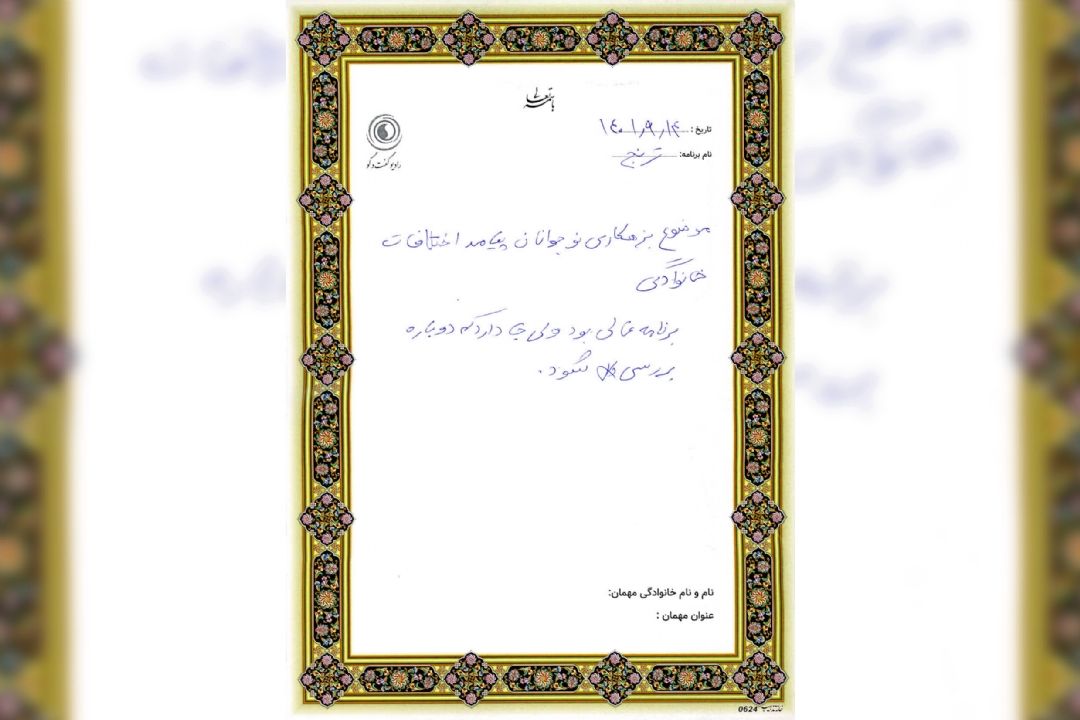 باسمه تعالی
تاریخ: ۱۴۰۱٫۹٫۱۴
نام برنامه: ترنج
رادیو گفت و گو
موضوع بزهکاری نوجوانان پیامد اختلافات
خانوادگی
برنامه عالی بود ولی جا دارد که دوباره
بررسی شود.
نام و نام خانوادگی مهمان:
عنوان مهمان :
0624